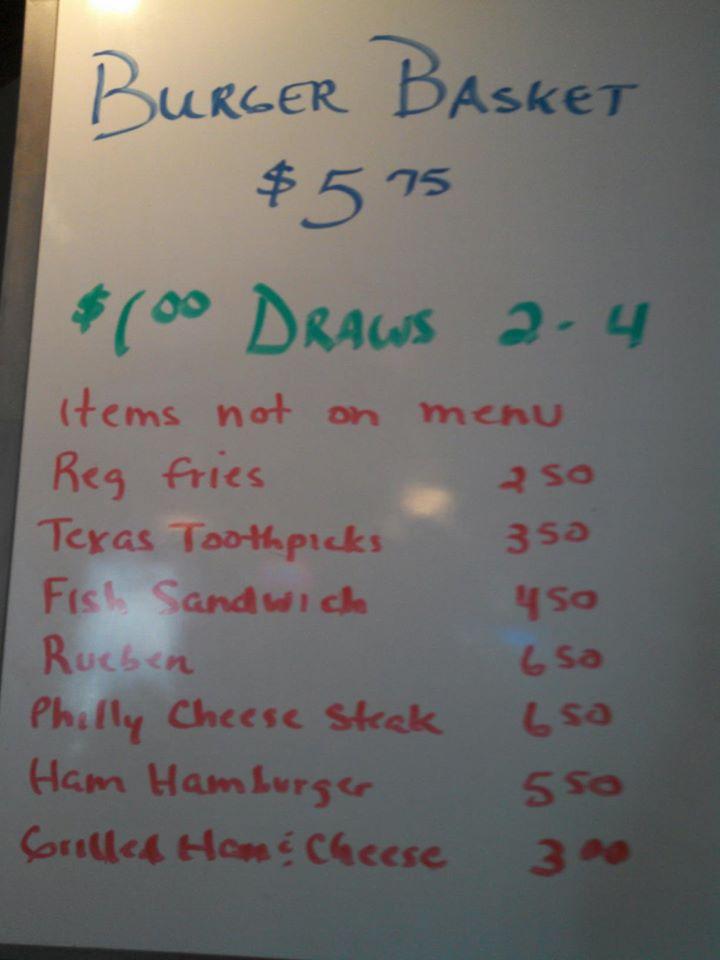 BURGER BASKET
$5 75
$1 00 DRAWS 2-4
Items not on menu
Reg fries 2 50
Texas Toothpicks 3 50
Fish Sandwich 4 50
Rueben 6 50
Philly Cheese Steak 6 50
Ham Hamburger 5 50
Grilled Ham & Cheese 3 00